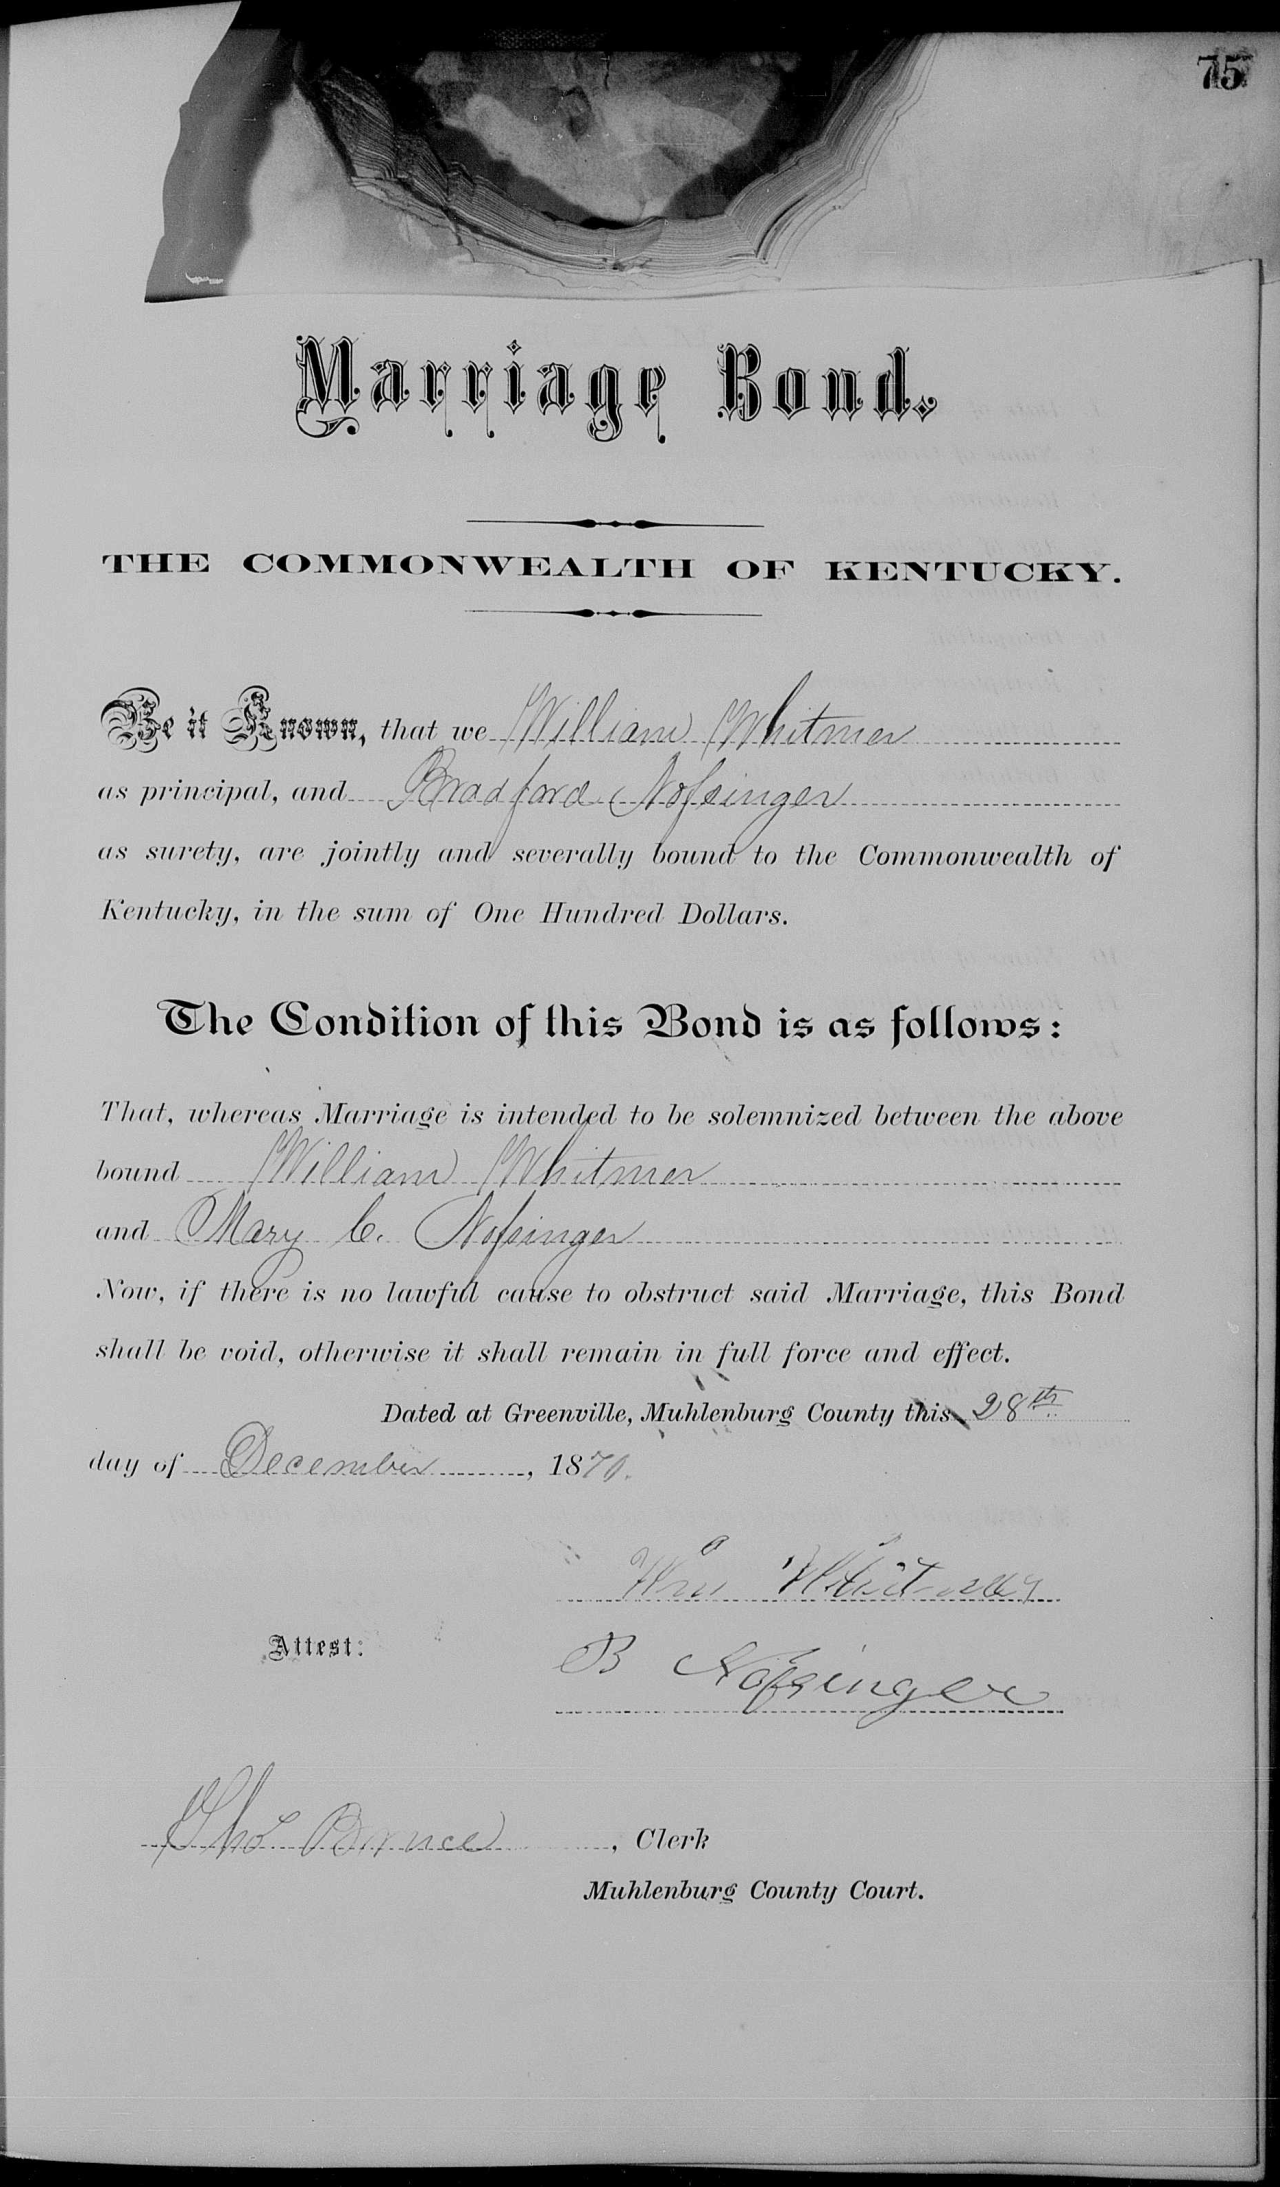 75
Marriage Bond.
THE COMMONWEALTH OF KENTUCKY.
Be it Known, that we William Whitmer
as principal, and Bradford Nofsinger
as surety, are jointly and severally bound to the Commonwealth of
Kentucky, in the sum of One Hundred Dollars.
The Condition of this Bond is as follows:
That, whereas Marriage is intended to be solemnized between the above
bound William Whitmer
and Mary C. Nofsinger
Now, if there is no lawful cause to obstruct said Marriage, this Bond
shall be void, otherwise it shall remain in full force and effect.
Dated at Greenville, Muhlenburg County this 28th
day of December, 1870.
Wm Whitmer
B Nofsinger
Attest:
Tho Bruce, Clerk
Muhlenburg County Court.